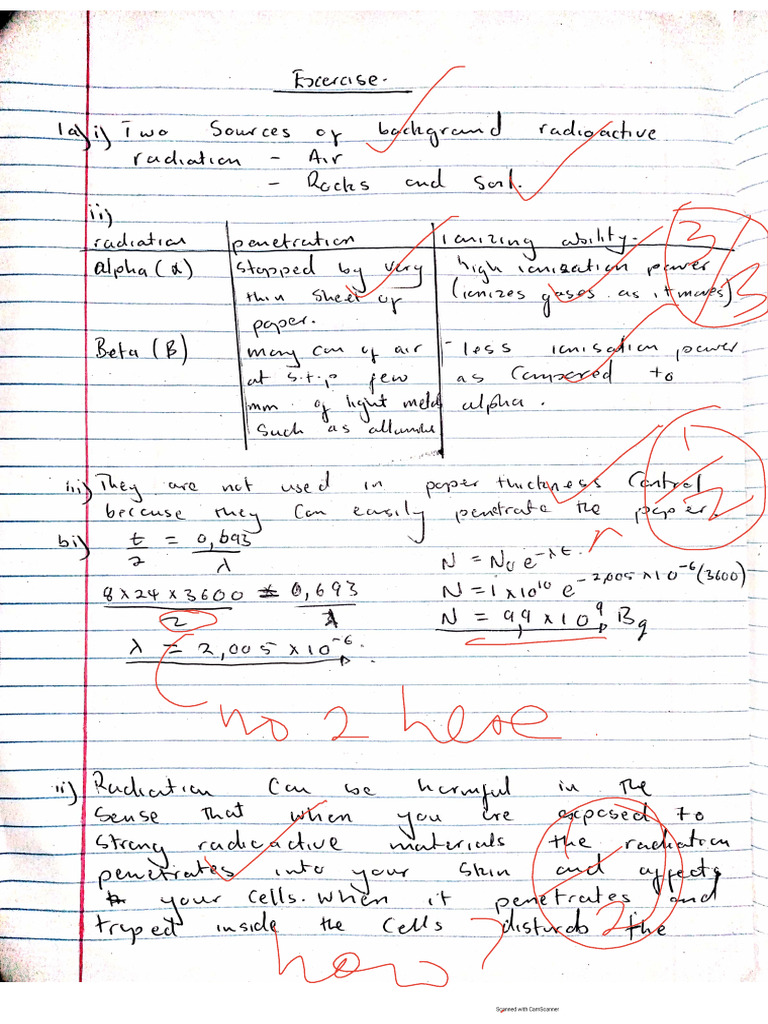 Excercise.
1a) i) Two Sources of background radioactive
radiation - Air
- Rocks and Soil.
ii)
radiation penetration ionizing ability.
Alpha (α) stopped by very high ionization power
thin sheet of (ionizes gases as it moves)
paper.
3/3
Beta (B) many cm of air - less ionisation power
at s.t.p few as Compared to
mm of light metal alpha.
Such as
iii) They are not used in paper thickness Control
because they can easily penetrate the paper.
1/2
bi) t/2 = 0,693/λ
8x24x3600/2 = 0,693/λ
λ = 2,005 x 10^-6.
N = N0 e^-λt.
N = 1x10^10 e^-2,005x10^-6(3600)
N = 9,9 x 10^9 Bq
no 2 here
ii) Radiation Can be harmful in the
sense that when you are exposed to
strong radioactive materials the radiation
penetrates into your skin and affects
your cells. When it penetrates and
traped inside the cells disturb the
1/2
how?
Scanned with CamScanner